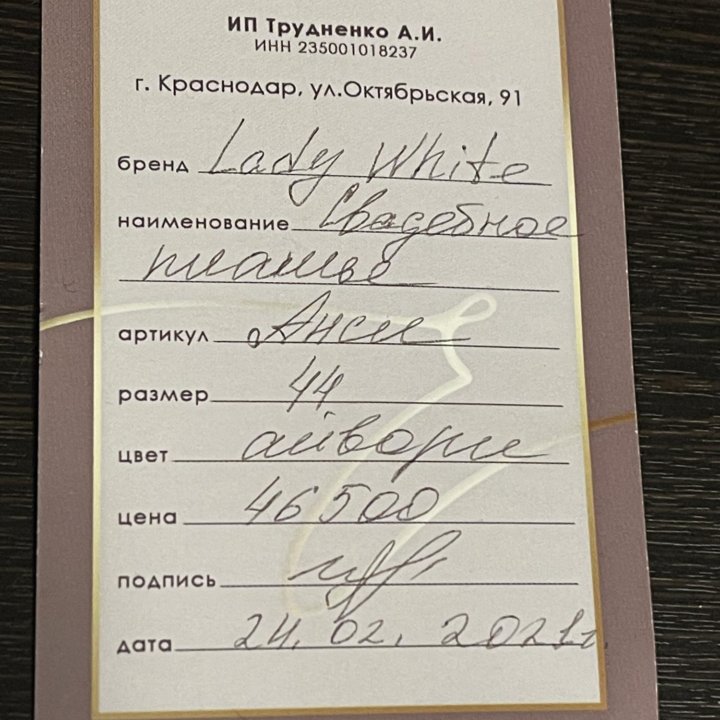 ИП Трудненко А.И.
ИНН 235001018237
г. Краснодар, ул.Октябрьская, 91
бренд Lady White
наименование Свадебное
платье
артикул Анси
размер 44
цвет айвори
цена 46500
подпись
дата 24.02.2021г.